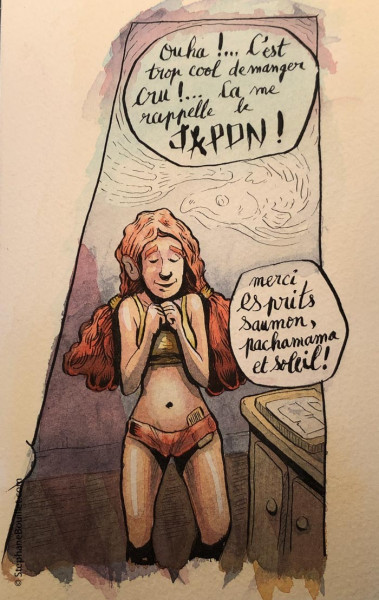 Ouha !... C'est
trop cool de manger
cru !... Ca me
rappelle le
JAPON !
merci
esprits
saumon,
pachamama
et soleil !